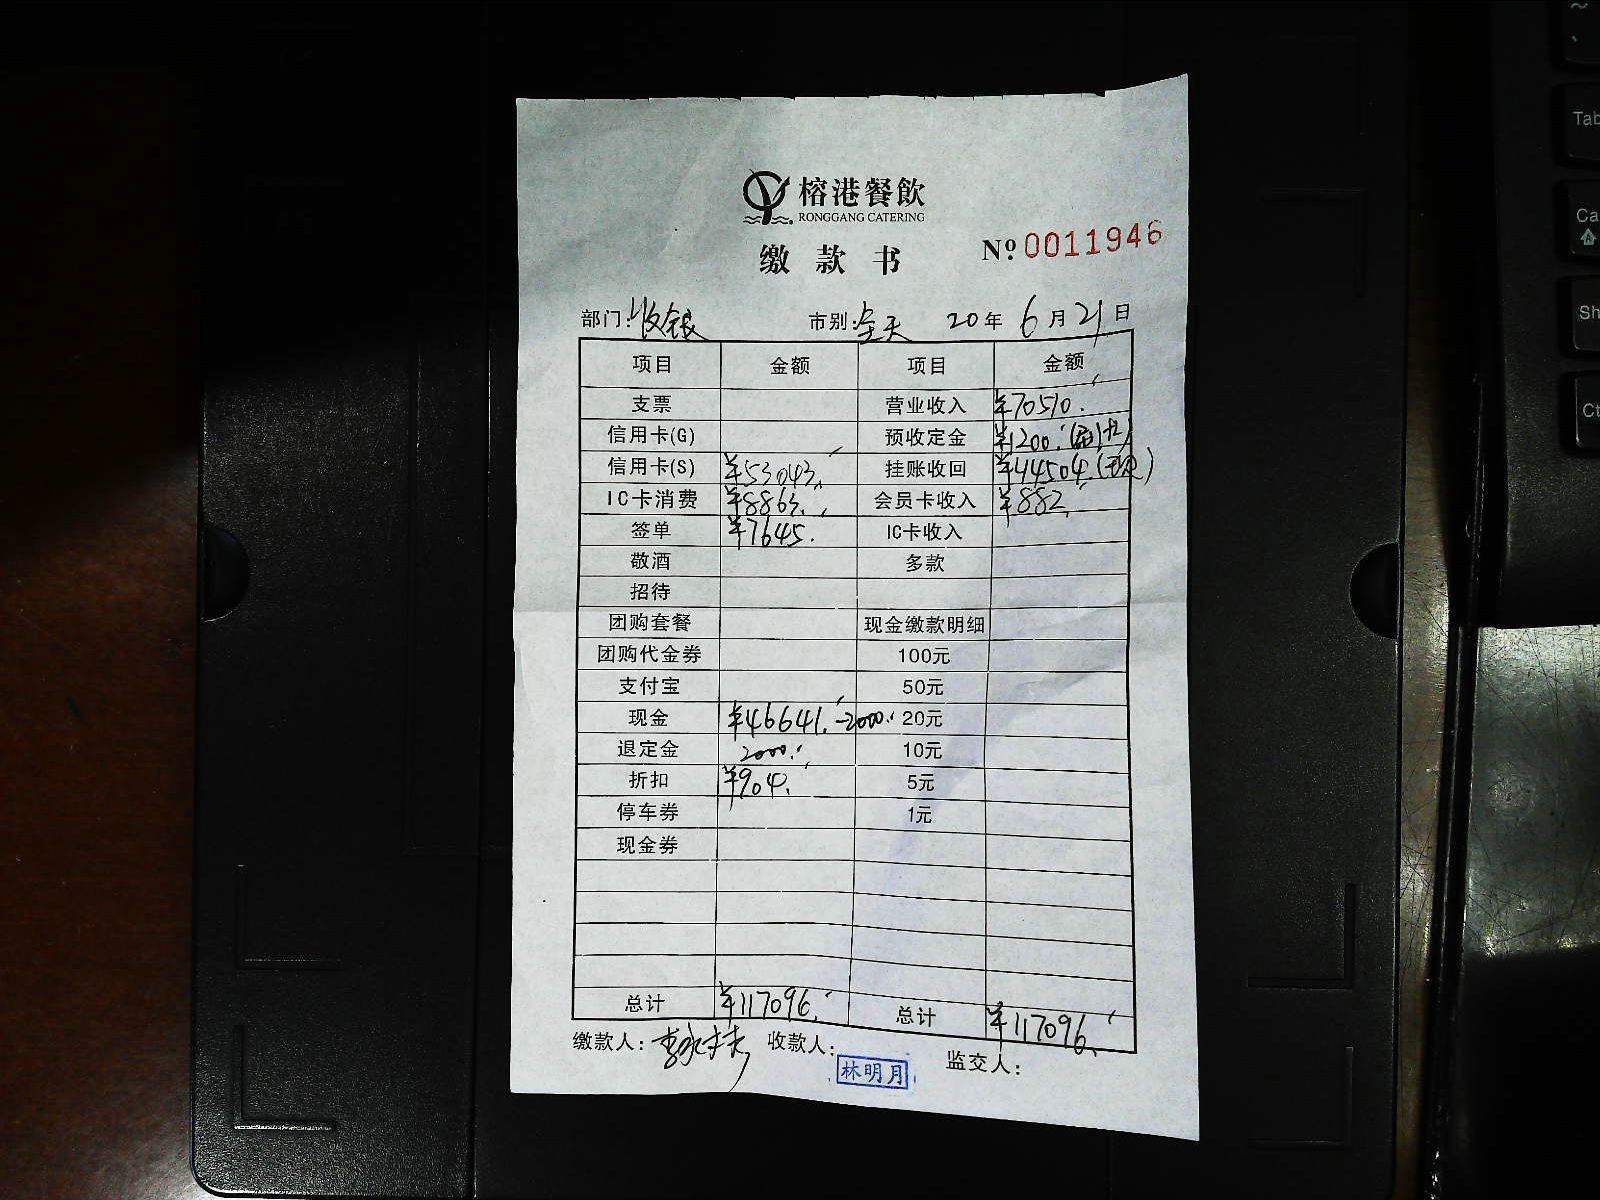 榕港餐飲
RONGGANG CATERING
缴款书
№ 0011946
部门: 收银 市别: 全天 20年 6月 21日
项目 金额 项目 金额
支票 营业收入 ¥70510.
信用卡(G) 预收定金 ¥1200.
信用卡(S) ¥53043. 挂账收回 ¥44504.
IC卡消费 ¥8863. 会员卡收入 ¥882.
签单 ¥7645. IC卡收入
敬酒 多款
招待
团购套餐 现金缴款明细
团购代金券 100元
支付宝 50元
现金 ¥46641.-2000. 20元
退定金 2000. 10元
折扣 ¥904. 5元
停车券 1元
现金券
总计 ¥117096. 总计 ¥117096.
缴款人: 收款人: 林明月 监交人:
Tab
Ca
Sh
Ct